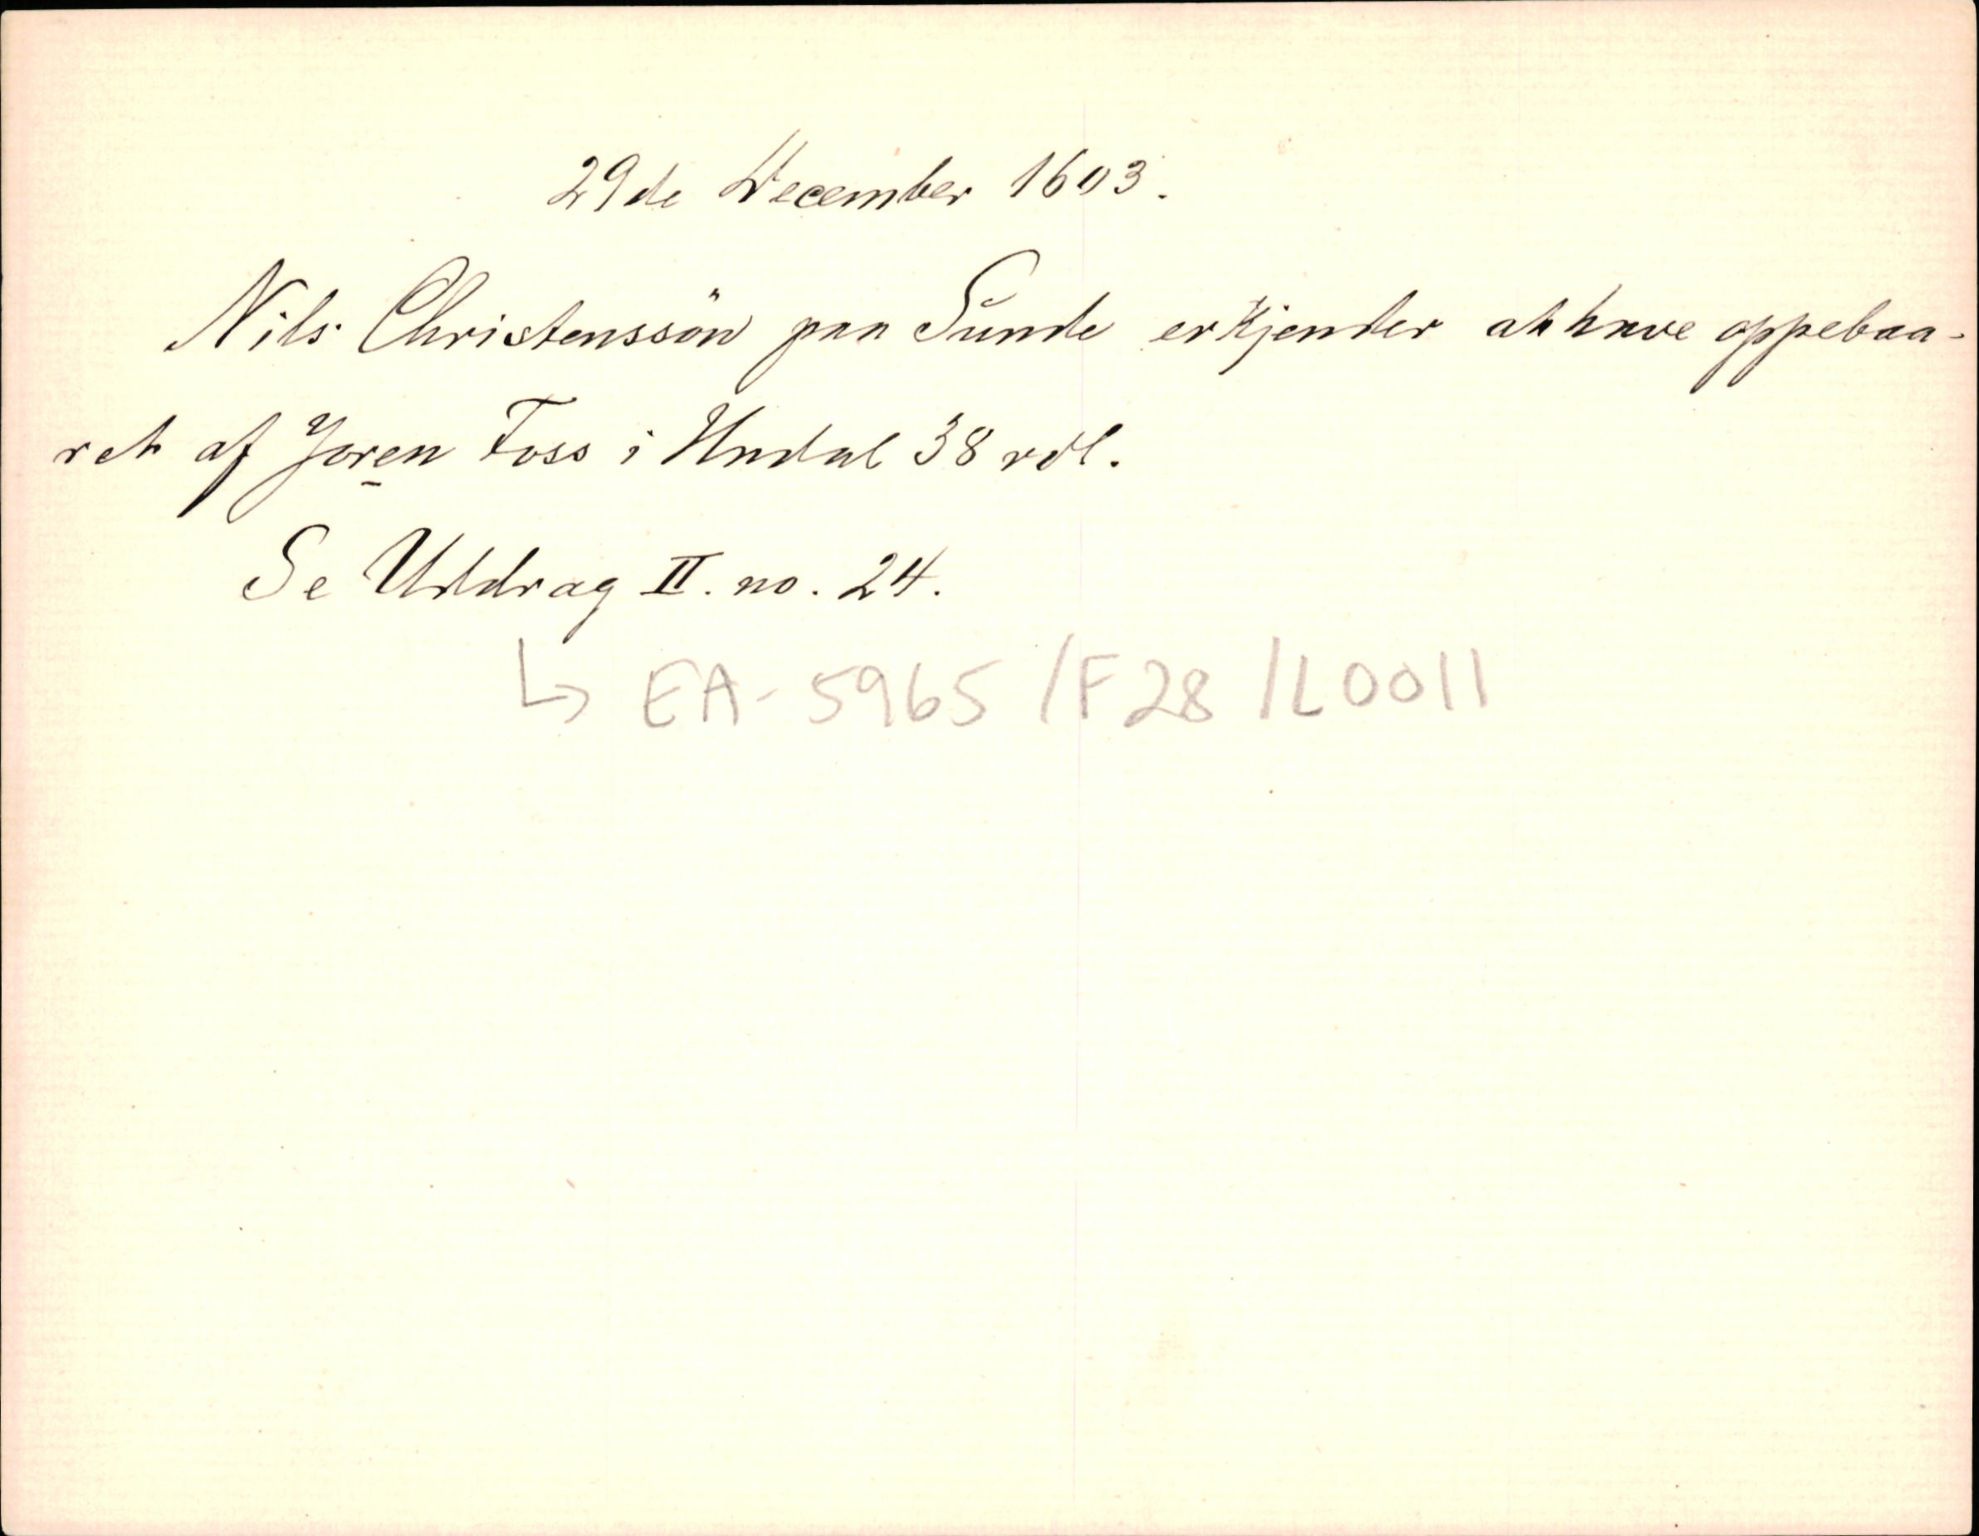 29de December 1603.
Nils Christenssön paa Sunde erkjender at have oppebaa-
ret af Joren Foss i Undal 38 rdl.
Se Uddrag II. no. 24.
↳ EA-5965/F28/L0011